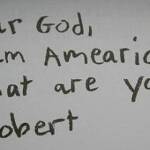 ur God,
am Amearic
hat are yo
obert